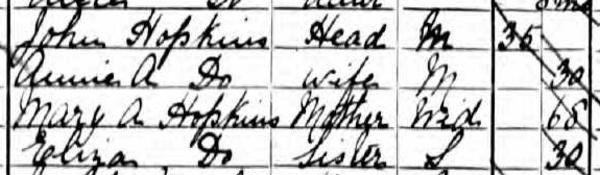 John Hopkins Head M 35
Annie A Do Wife M 30
Mary A Hopkins Mother Wid 68
Eliza Do Sister S 30